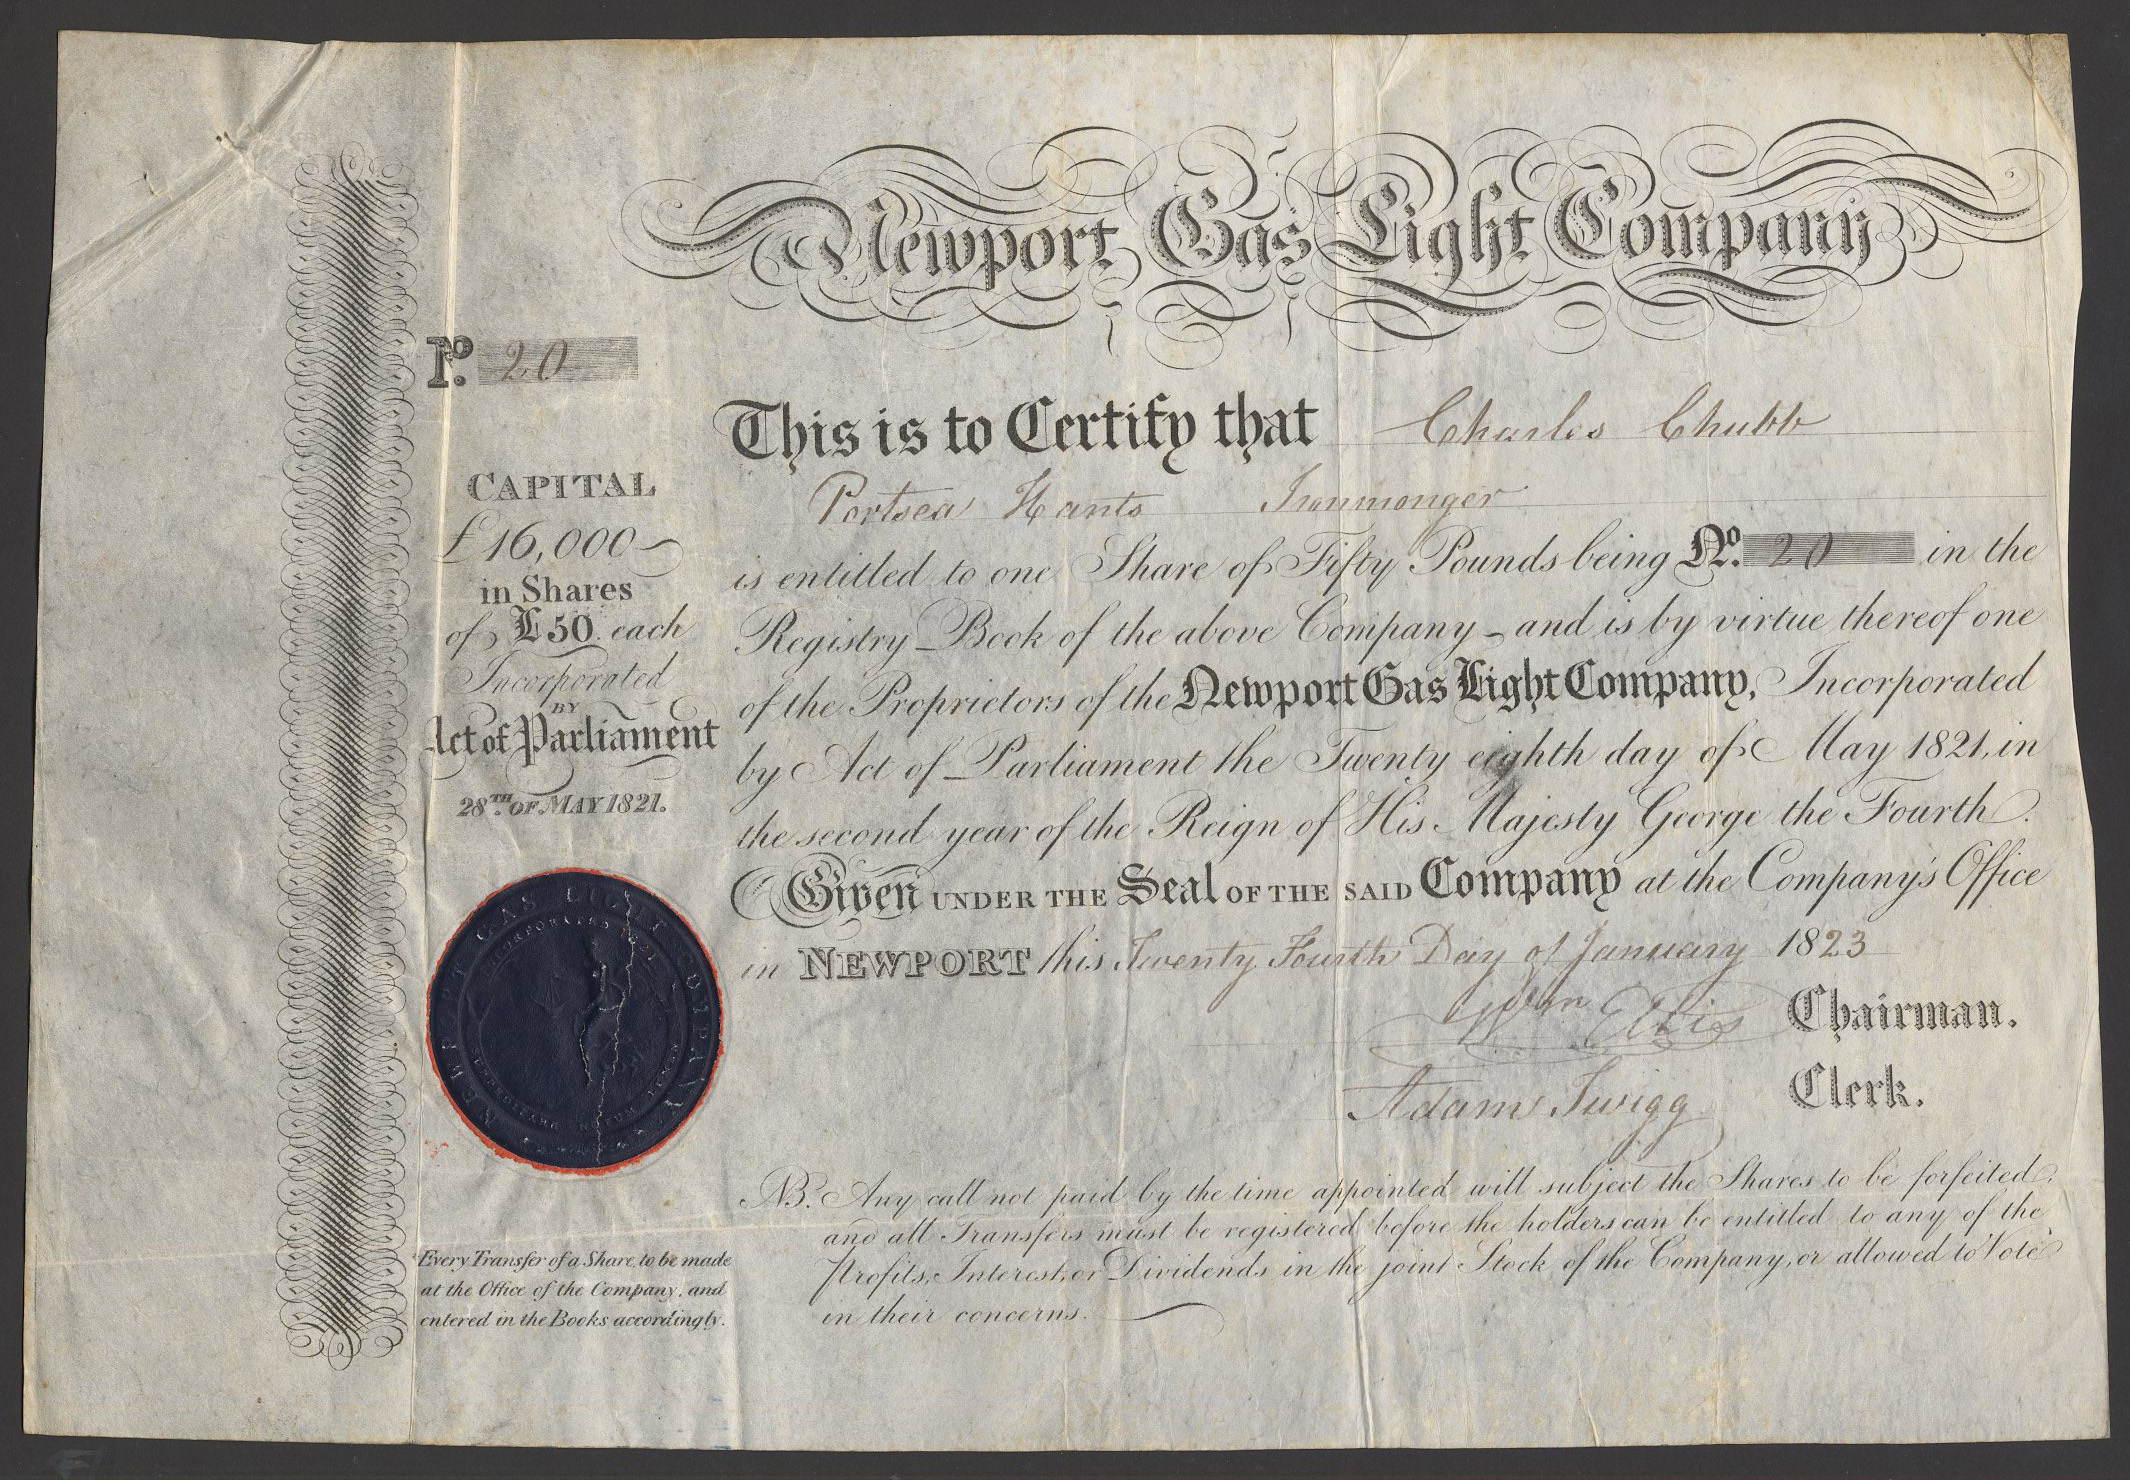 Newport Gas Light Company
No. 20
CAPITAL
£16,000
in Shares
of £50 each
Incorporated
BY
Act of Parliament
28TH OF MAY 1821.
This is to Certify that Charles Chubb
Portsea Hants Ironmonger
is entitled to one Share of Fifty Pounds being No. 20 in the
Registry Book of the above Company - and is by virtue thereof one
of the Proprietors of the Newport Gas Light Company, Incorporated
by Act of Parliament the Twenty eighth day of May 1821, in
the second year of the Reign of His Majesty George the Fourth.
Given UNDER THE Seal OF THE SAID Company at the Company's Office
in NEWPORT this Twenty Fourth Day of January 1823
Wm Ellis Chairman.
Adam Twigg Clerk.
NB. Any call not paid by the time appointed will subject the Shares to be forfeited,
and all Transfers must be registered before the holders can be entitled to any of the
Profits, Interest, or Dividends in the joint Stock of the Company, or allowed to Vote
in their concerns.
GAS LIGHT COMPANY
INCORPORATED 1821
Every Transfer of a Share, to be made
at the Office of the Company, and
entered in the Books accordingly.